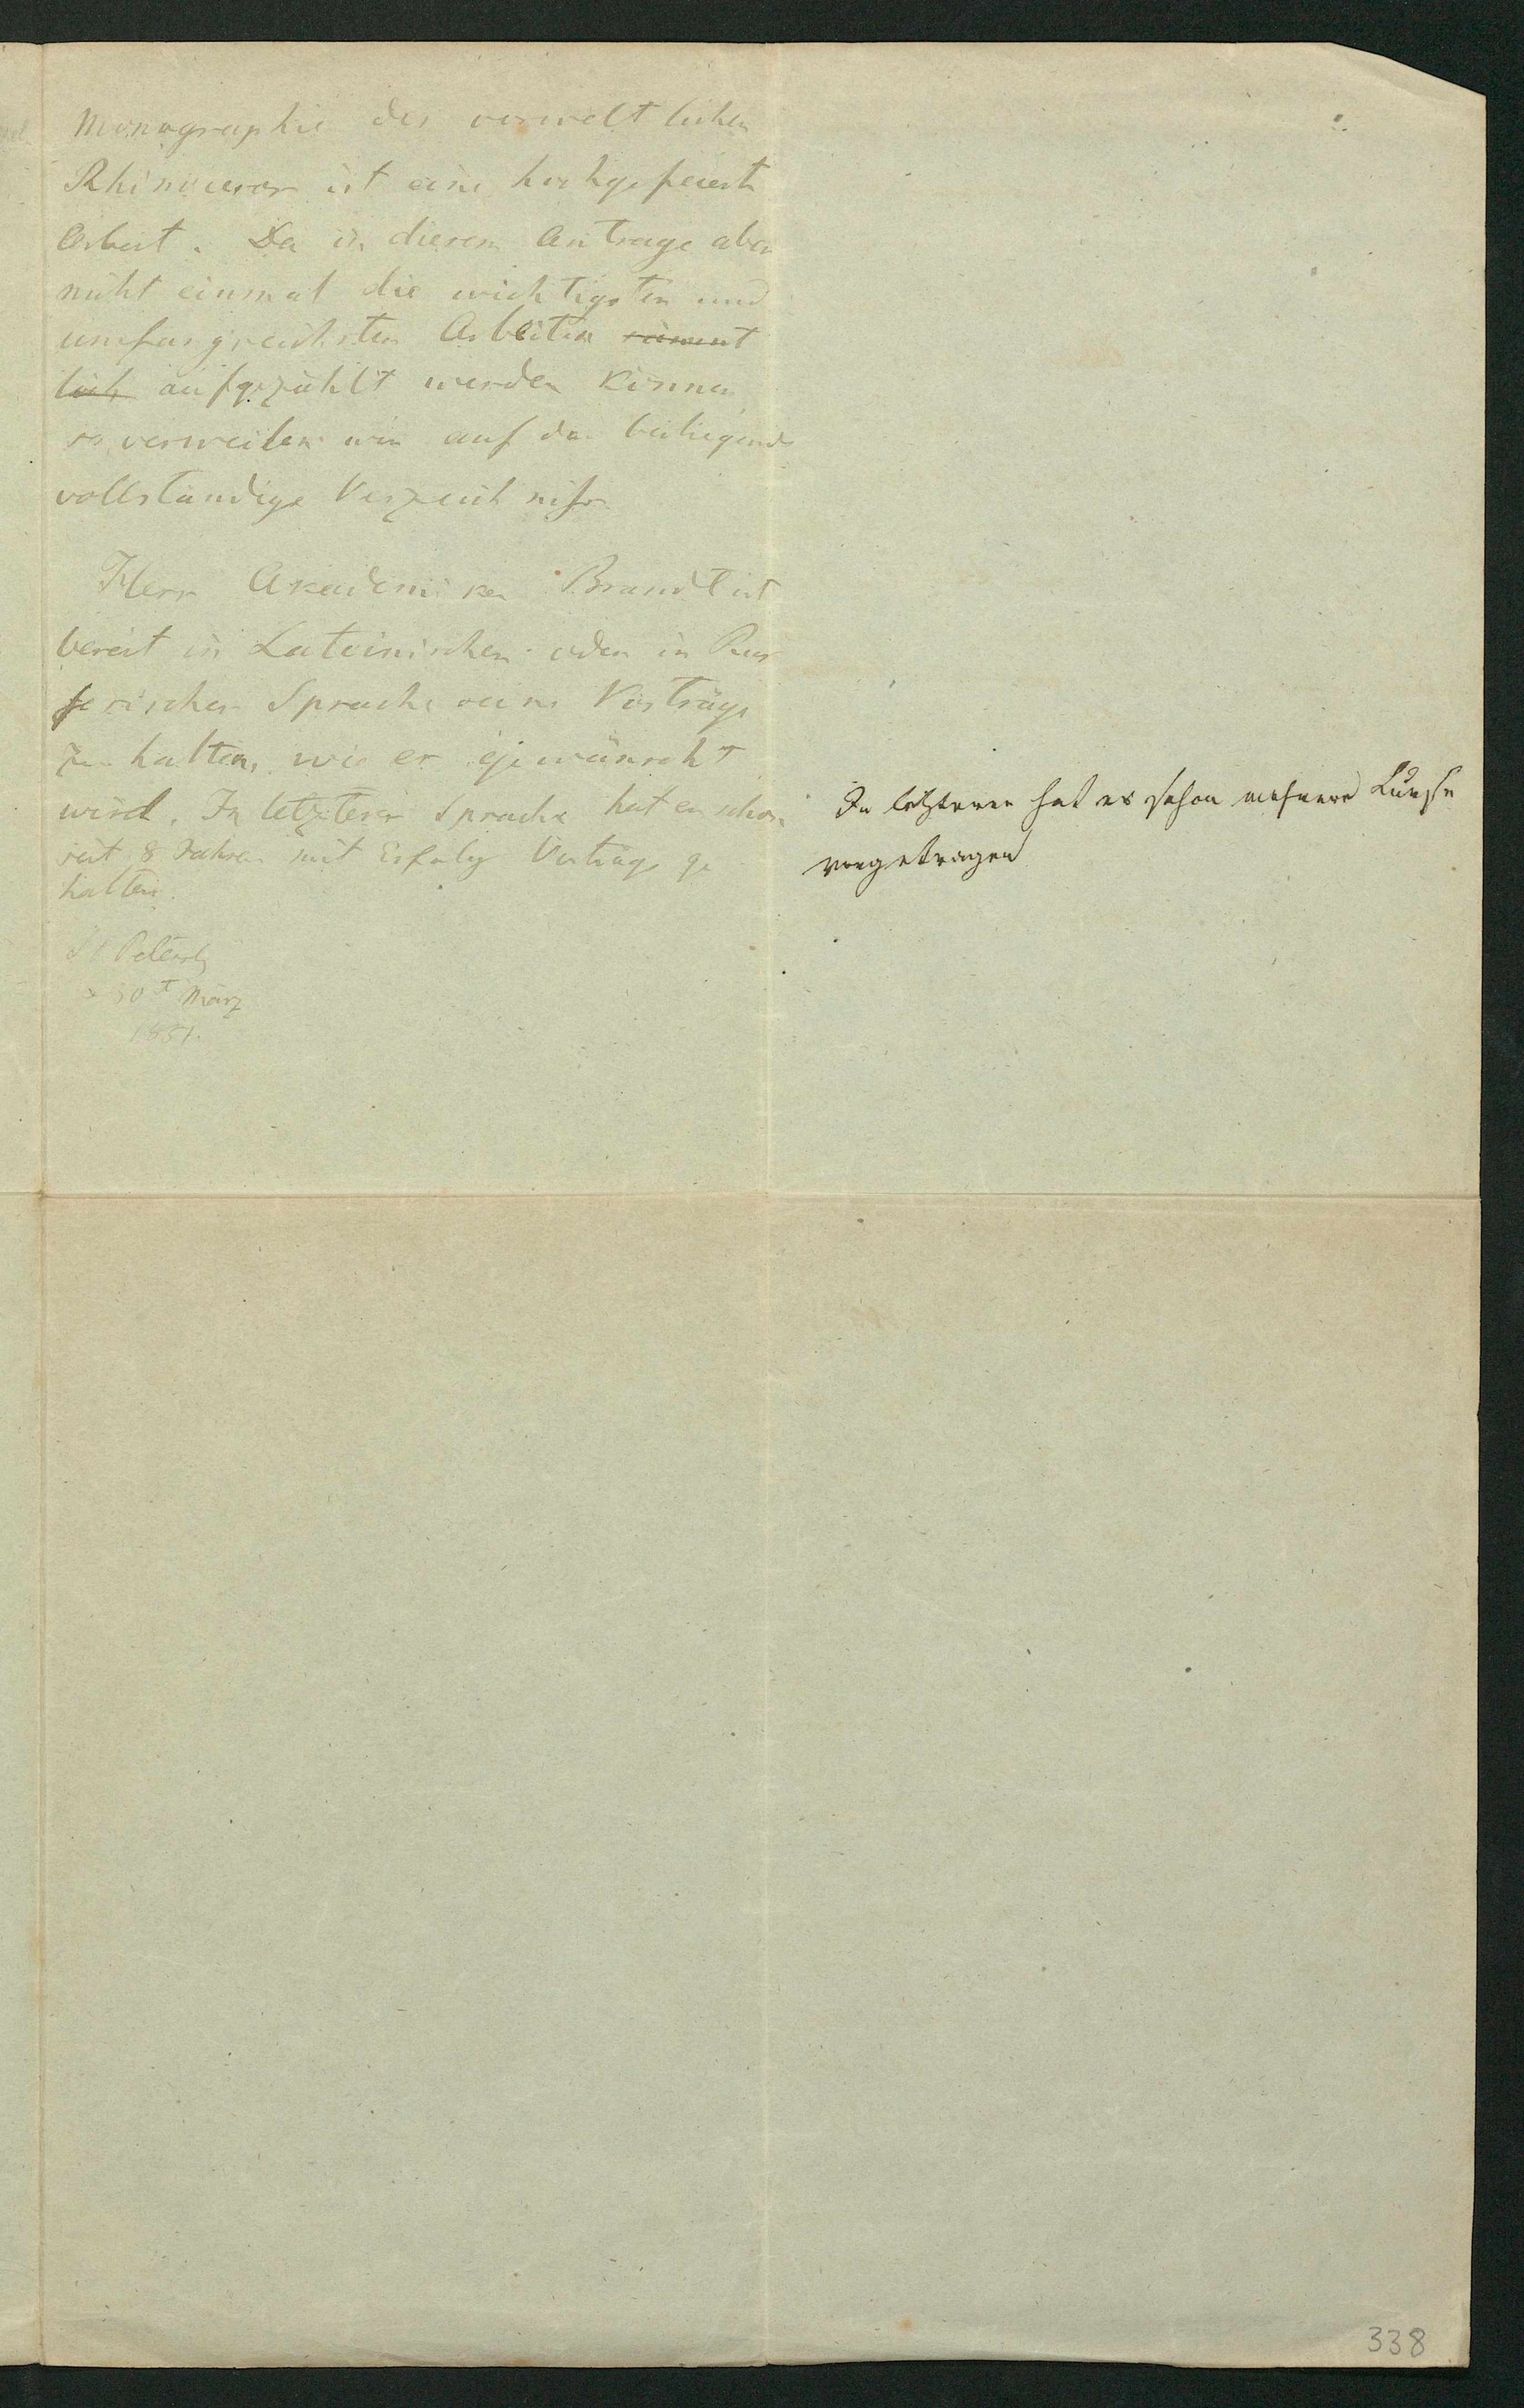 Monographie des vorweltlichen
Rhinoceros ist eine hochgefeierte
Arbeit. Da in diesem Antrage aber
nicht einmal die wichtigsten und
umfangreichsten Arbeiten sämmt
lich aufgezählt werden können,
so verweisen wir auf das beiliegende
vollständige Verzeichniss.
Herr Akademiker Brandt ist
bereit in Lateinischer oder in Rus
sischer Sprache seine Vorträge
zu halten, wie es gewünscht
wird. In letzterer Sprache hat er schon
seit 8 Jahren mit Erfolg Vorträge ge
halten
In letzterer hat er schon mehrere Kurse
vorgetragen
St Petersb
30t März
1851.
338